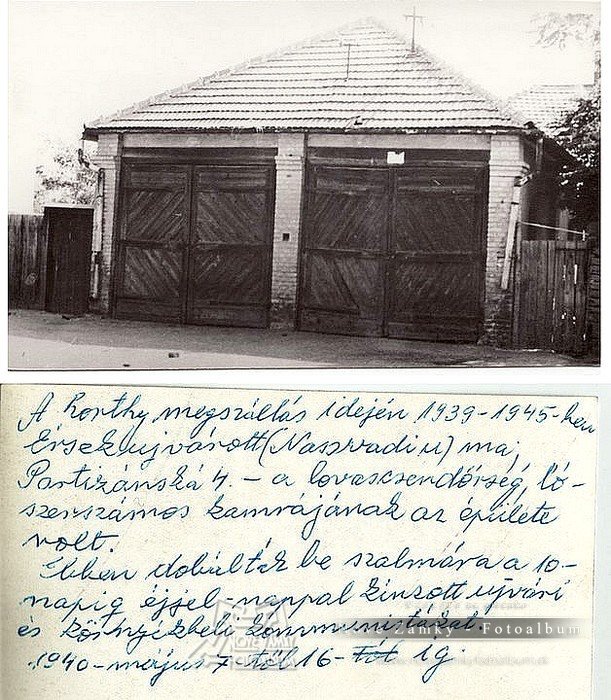 A horthy megszállás idején 1939-1945-ben
Érsekujvárott (Naszvadi u) ma,
Partizánská 4. - a lovascsendőrség, ló-
szerszámos kamrájának az épülete
volt.
Ebben dobálták be szalmára a 10-
napig éjjel-nappal kínzott ujvári
és környékbeli kommunistákat.
Zámky - Fotoalbum
1940-május 7 től 16-tot ig.